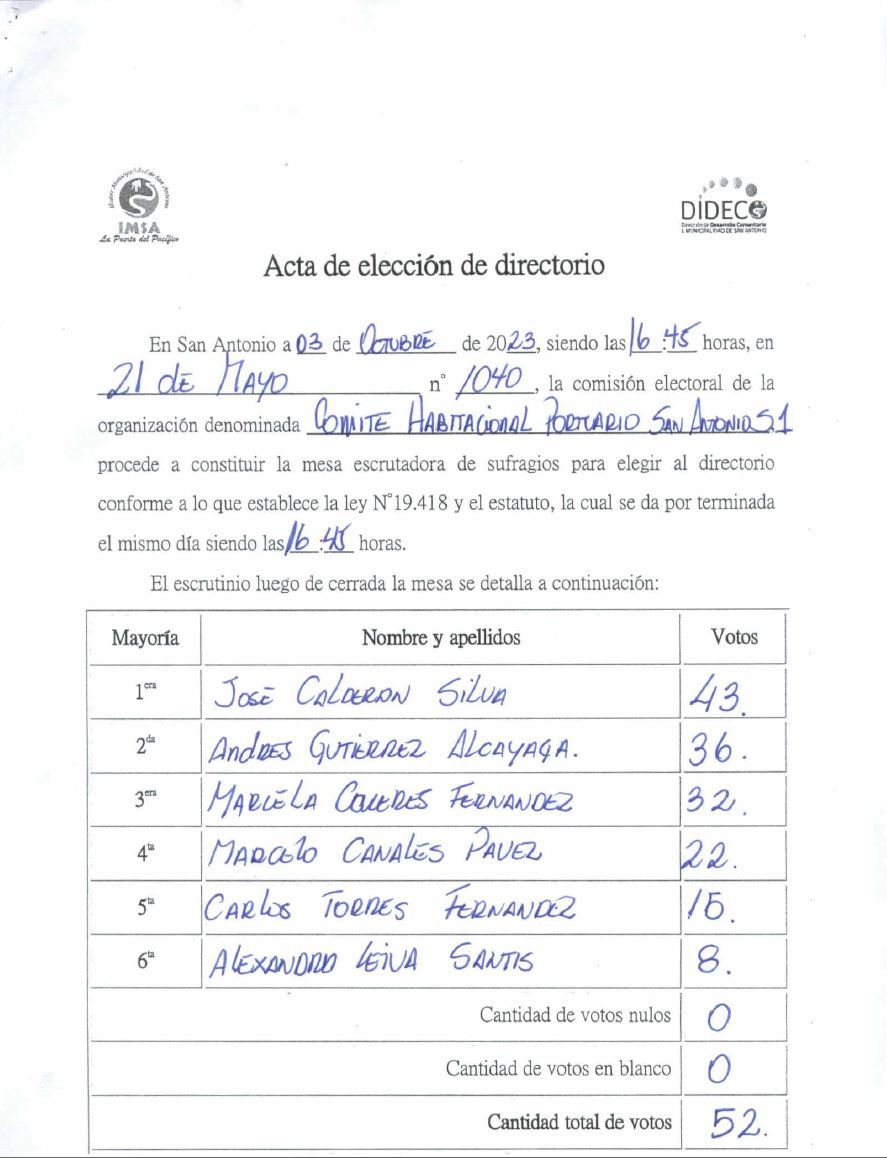 Ilustre Municipalidad de San Antonio
IMSA
La Puerta del Pacífico
DIDECO
Dirección de Desarrollo Comunitario
I. MUNICIPALIDAD DE SAN ANTONIO
Acta de elección de directorio
En San Antonio a 03 de OCTUBRE de 2023, siendo las 16:45 horas, en
21 de MAYO n° 1040, la comisión electoral de la
organización denominada COMITE HABITACIONAL PORTUARIO SAN ANTONIO S.1
procede a constituir la mesa escrutadora de sufragios para elegir al directorio
conforme a lo que establece la ley N°19.418 y el estatuto, la cual se da por terminada
el mismo día siendo las 16:45 horas.
El escrutinio luego de cerrada la mesa se detalla a continuación:
Mayoría Nombre y apellidos Votos
1era JOSÉ CALDERON SILVA 43.
2da ANDRES GUTIERREZ ALCAYAGA. 36.
3era MARIELA FERNANDEZ 32.
4ta MARCELO CANALES PAVEZ 22.
5ta CARLOS TORRES FERNANDEZ 15.
6ta ALEXANDRO LEIVA SANTIS 8.
Cantidad de votos nulos 0
Cantidad de votos en blanco 0
Cantidad total de votos 52.